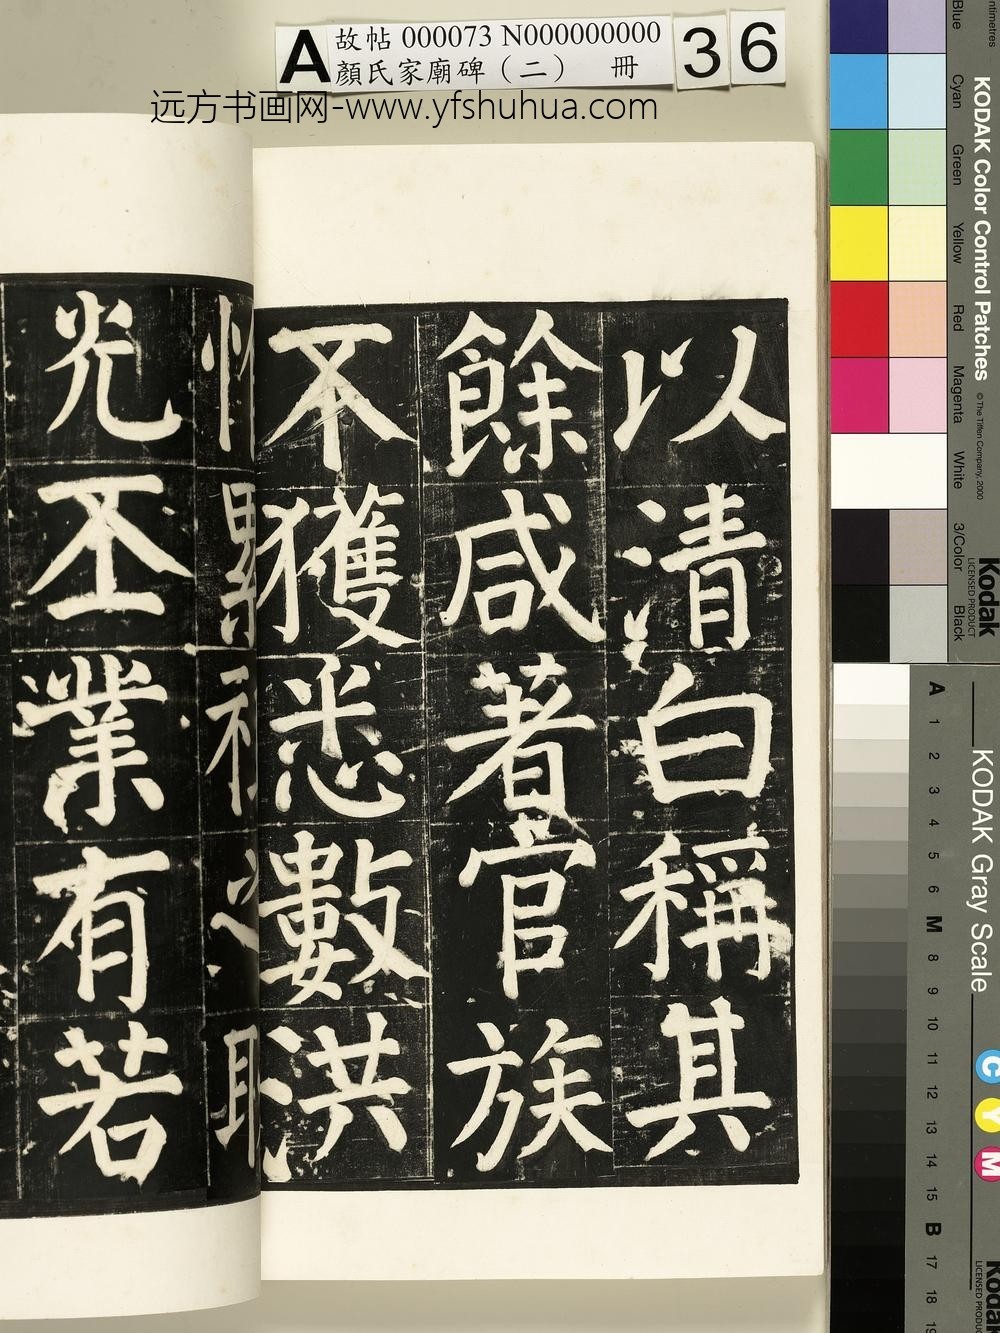 A
故帖 000073 N000000000
顏氏家廟碑（二） 冊
36
远方书画网-www.yfshuhua.com
以清白稱其
餘咸著官族
不獲悉數洪
光丕業有若
KODAK Color Control Patches
© The Tiffen Company, 2000
Kodak
LICENSED PRODUCT
Blue
Cyan
Green
Yellow
Red
Magenta
White
3/Color
Black
KODAK Gray Scale
C
Y
M
Kodak
LICENSED PRODUCT
A 1 2 3 4 5 6 M 8 9 10 11 12 13 14 15 B 17 18